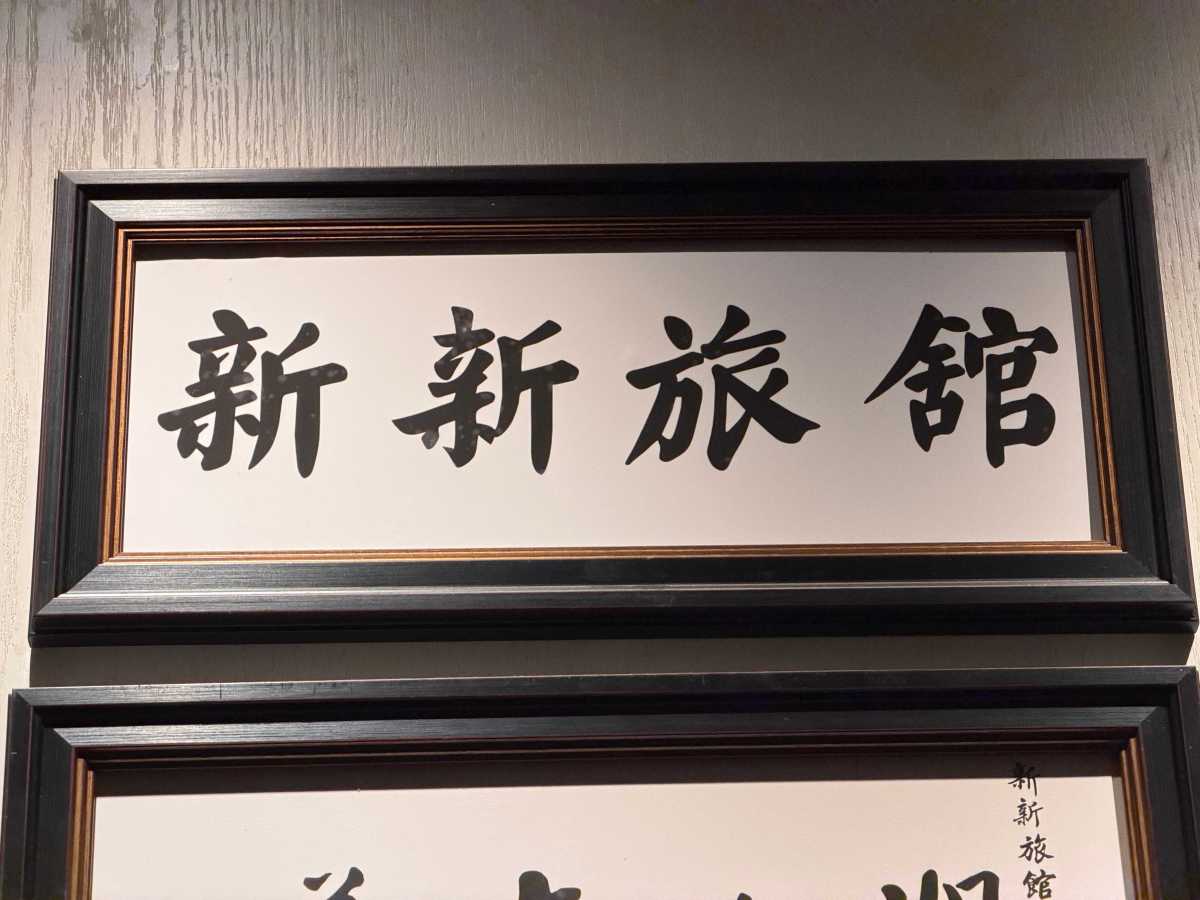 新新旅舘
新新旅館